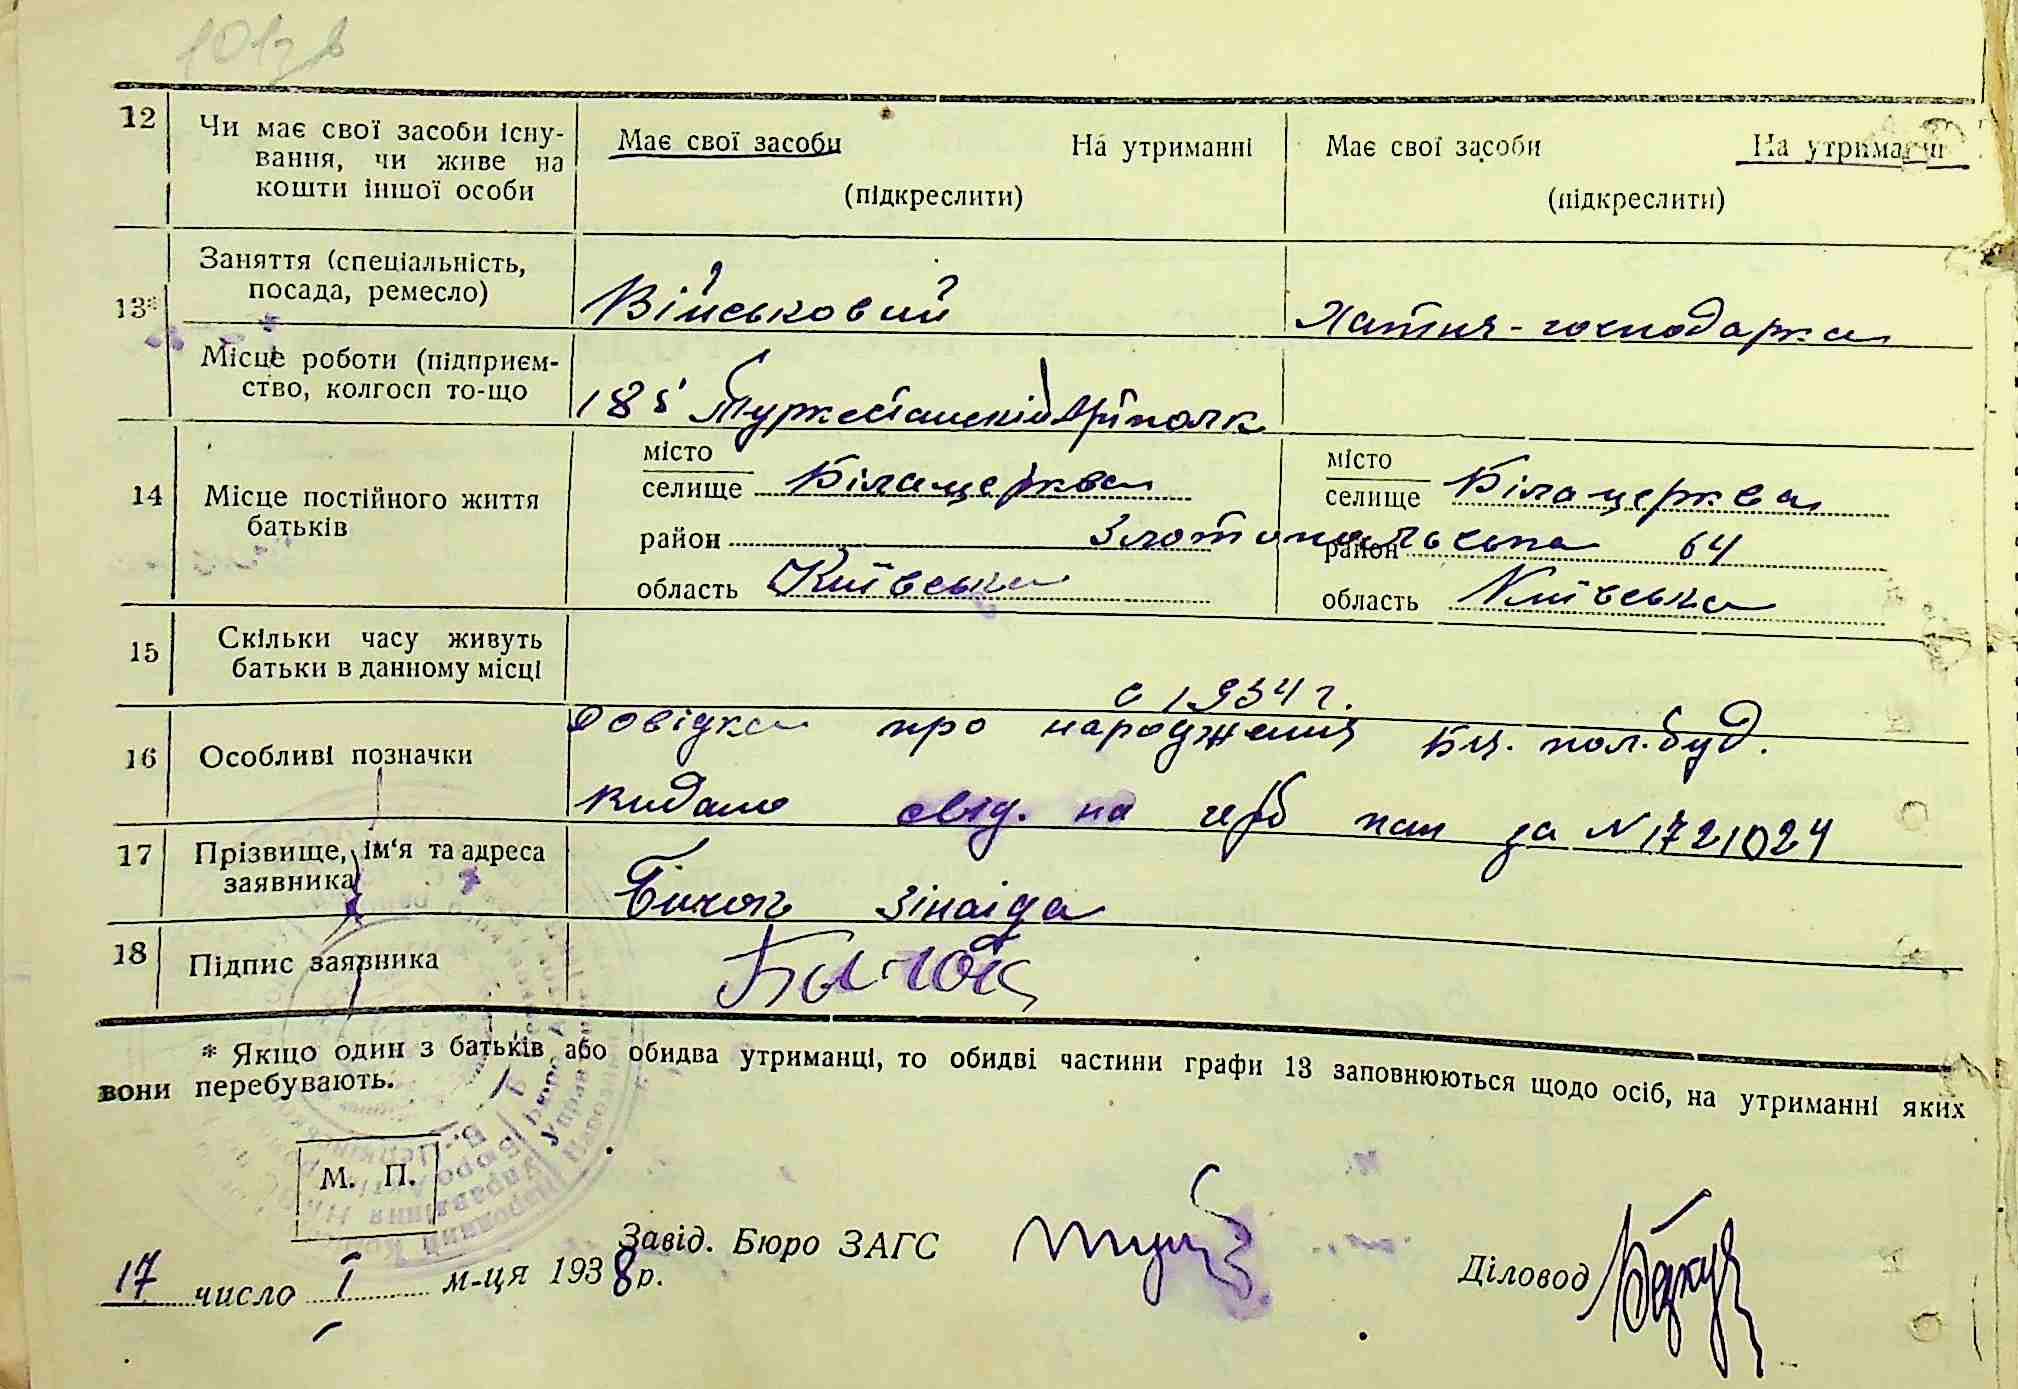 12
Чи має свої засоби існу-
вання, чи живе на
кошти іншої особи
Має свої засоби На утриманні
(підкреслити)
Має свої засоби На утриманні
(підкреслити)
13*
Заняття (спеціальність,
посада, ремесло)
Військовий
Хатня-господарка
Місце роботи (підприєм-
ство, колгосп то-що
185 Туркестанський Арт полк
14
Місце постійного життя
батьків
місто
селище Білацерква
район
область Київська
місто
селище Білацерква
район 64
область Київська
15
Скільки часу живуть
батьки в данному місці
с 1934 г.
16
Особливі позначки
Довідка про народження Бц. пол. буд.
видано свід. на герб пап за N 1721024
17
Прізвище, ім'я та адреса
заявника
Бичок Зінаіда
18
Підпис заявника
* Якщо один з батьків або обидва утриманці, то обидві частини графи 13 заповнюються щодо осіб, на утриманні яких
вони перебувають.
М. П.
Завід. Бюро ЗАГС
Діловод
17 число I м-ця 1938 р.